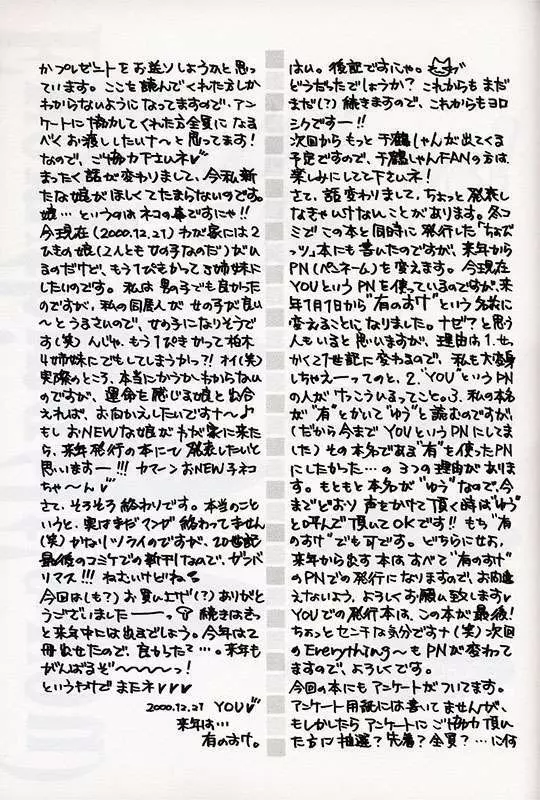 はい。後記ですにゃ。
どうだったでしょうか？これからもまだ
まだ(？)続きますので、これからもヨロ
シクですー!!
次回からもっと千鶴しゃんが出てくる
予定ですので、千鶴しゃんFANの方は、
楽しみにしてて下さいネ！
さて、話変わりまして、ちょっと発表し
なきゃいけないことがあります。冬コ
ミでこの本と同時に発行した「ちぉだ
ッツ」本にも書いたのですが、来年から
PN(ペンネーム)を変えます。今現在
YOUというPNを使っているのですが、来
年1月1日から"有のすけ"という名前に
変えることになりました。ナゼ？と思う
人もいると思いますが、理由は1.せっ
かく21世紀に変わるので、私も大変身
しちゃえーってのと、2."YOU"というPN
の人がけっこういるってこと。3.私の本名
が"有"とかいて"ゆう"と読むのですが、
(だから今までYOUというPNにしてま
した)その本名である"有"を使ったPN
にしたかった…の3つの理由がありま
す。もともと本名が"ゆう"なので、今
までどおり声をかけて頂く時は"ゆう"
と呼んで頂いてOKです!!もち"有
のすけ"でも可です。どちらにせよ、
来年から出す本はすべて"有のすけ"
のPNでの発行になりますので、お間違
えないよう、よろしくお願い致します♥
YOUでの発行本は、この本が最後！
ちょっとセンチな気分ですナ(笑)次回
のEverything〜もPNが変わって
ますので、よろしくです。
今回の本にもアンケートがついてます。
アンケート用紙には書いてませんが、
もしかしたらアンケートにご協力頂い
た方に抽選？先着？全員？…に何
かプレゼントをお送りしようかと思っ
ています。ここを読んでくれた方しか
わからないようになってますので、アン
ケートに協力してくれた方全員になる
べくお渡ししたいナ〜と思ってます！
なので、ご協力下さいネ♥
まったく話が変わりまして、今私新
たな娘がほしくてたまらないのです。
娘…というのはネコの事ですにゃ!!
今現在(2000.12.21)わが家には2
ひきの娘(2人とも女の子なのだ)がい
るのだけど、もう1ぴきかって3姉妹に
したいのです。私は男の子でも良かった
のですが、私の同居人が女の子が良い
〜とうるさいので、女の子になりそうで
す(笑)んじゃ、もう1ぴきかって柏木
4姉妹にでもしてしまうかっ?!オイ(笑)
実際のところ、本当にかうかわからない
のですが、運命を感じる娘と出会
えれば、お向かえしたいですナ〜♪
もしおNEWな娘がわが家に来た
ら、来年発行の本にて発表したいと
思いますー!!!カマーンおNEW子ネコ
ちゃ〜ん♥
さて、そろそろ終わりです。本当のこと
いうと、実はまだマンガ終わってません
(笑)かなりツライのですが、20世紀
最後のコミケでの新刊なので、ガンバ
リマス!!!ねむいけどね
今回は(も？)お買い上げ(？)ありがと
うございましたーーっ 続きはきっ
と来年中には出るでしょう。今年は2
冊出せたので、良かったで…。来年も
がんばるぞ〜〜〜〜っ！
というわけでまたネ♥♥♥
2000.12.21 YOU♥
来年は…
有のすけ。